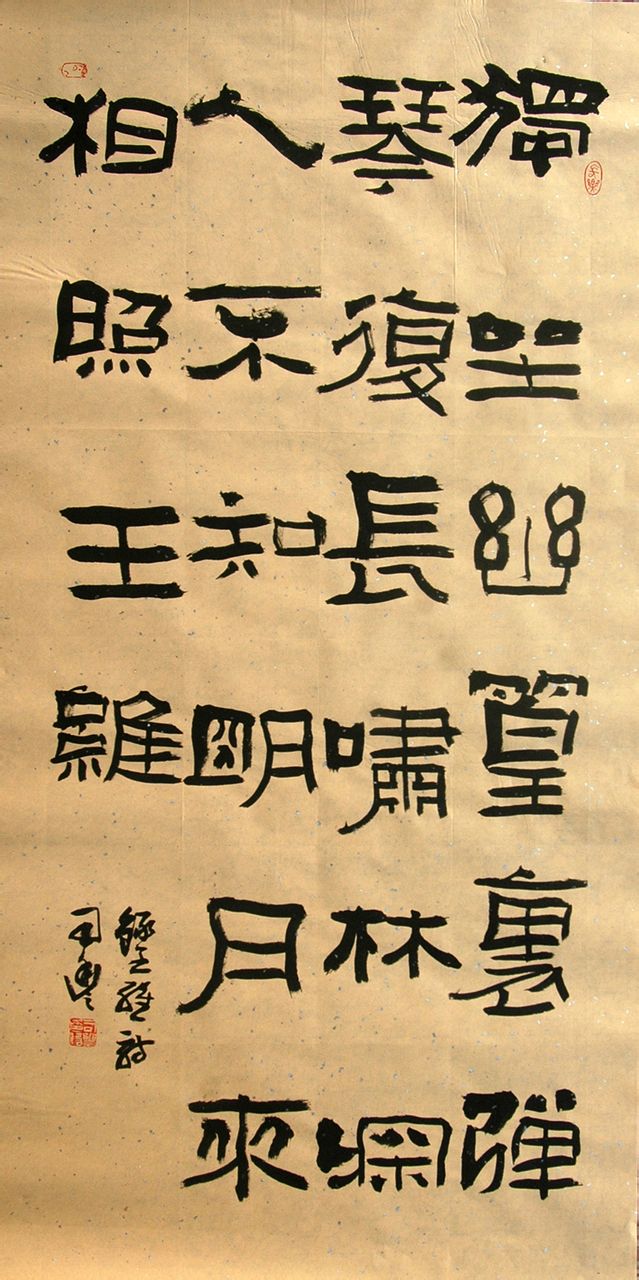 獨坐幽篁裏彈
琴復長嘯林深
人不知明月來
相照王維
錄王維詩